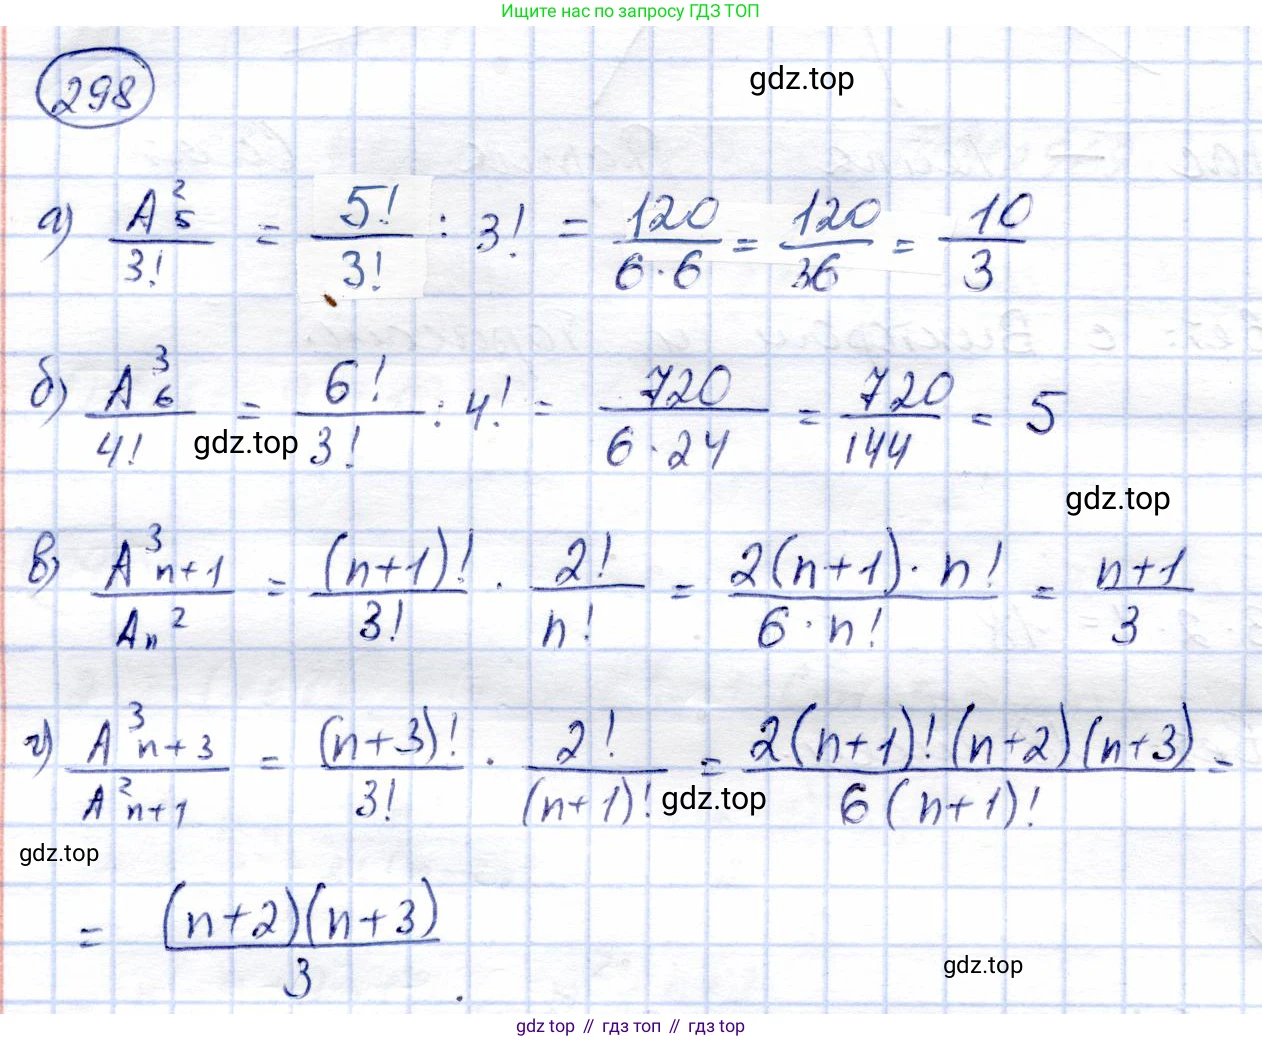 Ищите нас по запросу ГДЗ ТОП
298
gdz.top
а) A²₅ / 3! = 5! / 3! : 3! = 120 / 6·6 = 120 / 36 = 10 / 3
б) A³₆ / 4! = 6! / 3! : 4! = 720 / 6·24 = 720 / 144 = 5
gdz.top
gdz.top
в) A³ₙ₊₁ / Aₙ² = (n+1)! / 3! · 2! / n! = 2(n+1)·n! / 6·n! = n+1 / 3
г) A³ₙ₊₃ / A²ₙ₊₁ = (n+3)! / 3! · 2! / (n+1)! = 2(n+1)!(n+2)(n+3) / 6(n+1)! =
gdz.top
gdz.top
= (n+2)(n+3) / 3 .
gdz.top
gdz top // гдз топ // гдз top